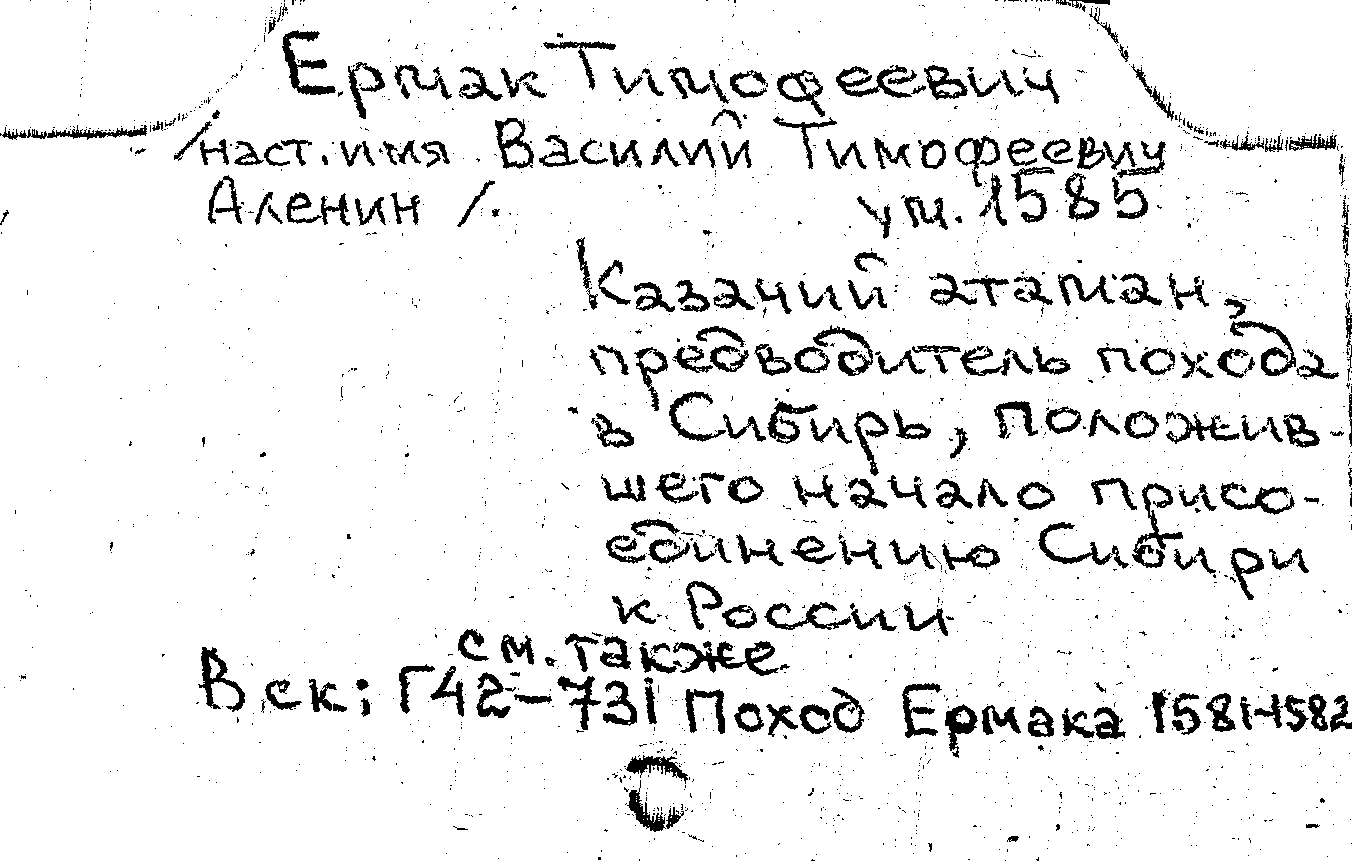 Ермак Тимофеевич
/наст. имя Василий Тимофеевич
Аленин /. ум. 1585
Казачий атаман,
предводитель похода
в Сибирь, положив-
шего начало присо-
единению Сибири
к России
см. также
В ск; Г42-731 Поход Ермака 1581-1582